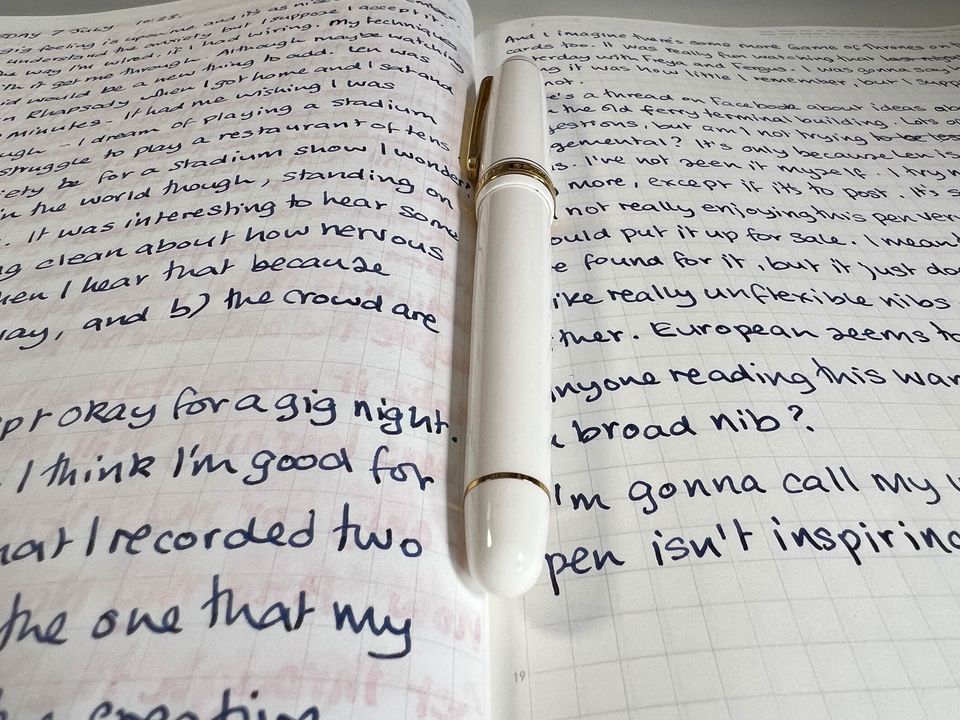 7 July 10:25.
gig feeling is upon me and it's as nice
understand the anxiety but I suppose I accept it.
the way I'm wired, if I had wiring. My techniques
got me through. Although maybe watching
would be a new thing to add. Len was
Rhapsody when I got home and I sat and
minutes. It had me wishing I was
- I dream of playing a stadium
struggle to play a restaurant of tens
be for a stadium show I wonder?
in the world though, standing on
It was interesting to hear some
clean about how nervous
when I hear that because
way, and b) the crowd are
okay for a gig night.
I think I'm good for
that I recorded two
the one that my
creative
And I imagine there's some more Game of Thrones on
cards too. It was really fun watching that
yesterday with Freya and Fergus. I was gonna say
it was how little I remember, but I
not.
There's a thread on Facebook about ideas
the old ferry terminal building. Lots
but am I not trying to be less
judgemental? It's only because Len is
I've not seen it myself. I try
more, except if it's to post. It's
not really enjoying this pen
could put it up for sale. I mean
found for it, but it just
like really unflexible nibs
European seems to
anyone reading this
a broad nib?
I'm gonna call my
pen isn't inspiring
19